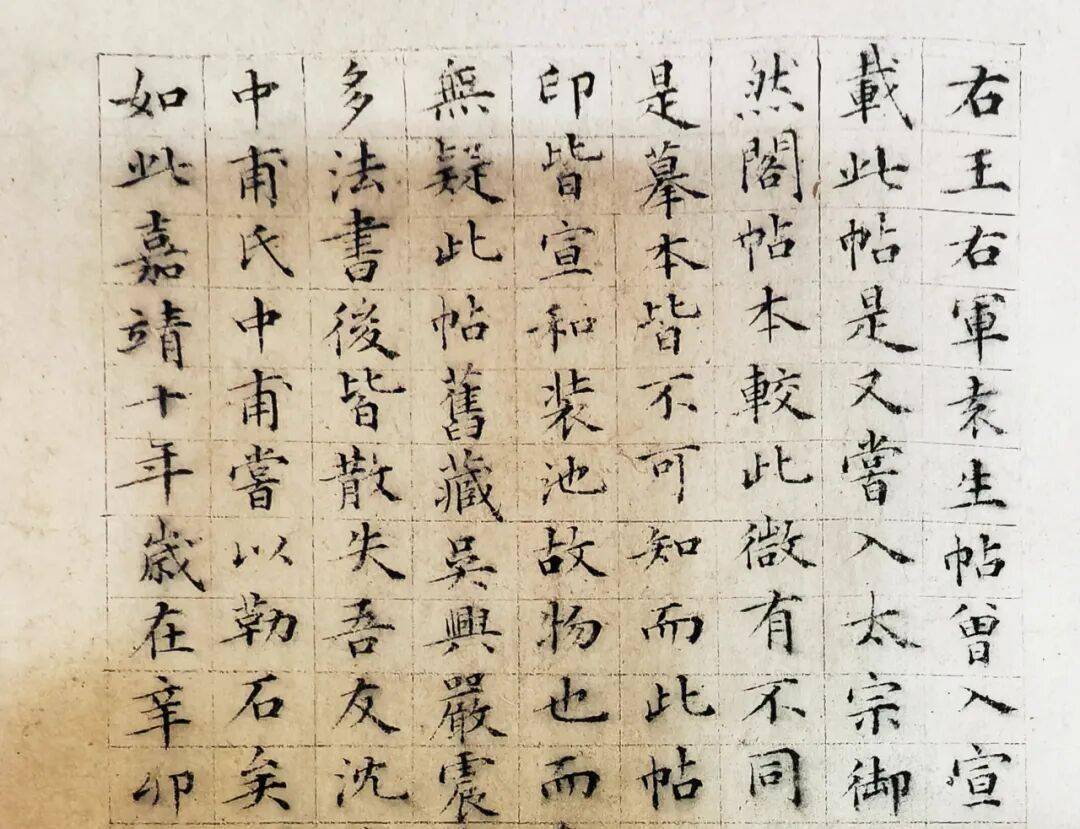 右王右軍袁生帖曾入宣
載此帖是又嘗入太宗御
然閣帖本較此微有不同
是摹本皆不可知而此帖
印皆宣和裝池故物也而
無疑此帖舊藏吳興嚴震
多法書後皆散失吾友沈
中甫氏中甫嘗以勒石矣
如此嘉靖十年歲在辛卯